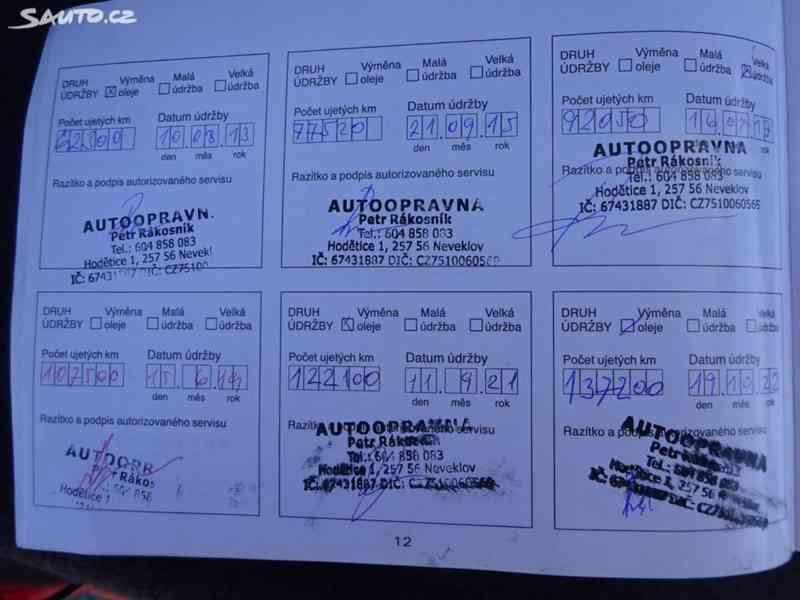 SAUTO.CZ
DRUH ÚDRŽBY Výměna oleje Malá údržba Velká údržba
Počet ujetých km Datum údržby
62300 10 08 13
den měs rok
Razítko a podpis autorizovaného servisu
AUTOOPRAVN
Petr Rákosník
Tel.: 604 858 083
Hodětice 1, 257 56 Nevekl
IČ: 67431887 DIČ: CZ75100
DRUH ÚDRŽBY Výměna oleje Malá údržba Velká údržba
Počet ujetých km Datum údržby
77520 21.09.15
den měs rok
Razítko a podpis autorizovaného servisu
AUTOOPRAVNA
Petr Rákosník
Tel.: 604 858 083
Hodětice 1, 257 56 Neveklov
IČ: 67431887 DIČ: CZ7510060565
DRUH ÚDRŽBY Výměna oleje Malá údržba Velká údržba
Počet ujetých km Datum údržby
92050
Razítko a podpis autorizovaného servisu
AUTOOPRAVNA
Petr Rákosník
Tel.: 604 858 083
Hodětice 1, 257 56 Neveklov
IČ: 67431887 DIČ: CZ7510060565
DRUH ÚDRŽBY Výměna oleje Malá údržba Velká údržba
Počet ujetých km Datum údržby
107500 15 6 19
den měs rok
Razítko a podpis autorizovaného servisu
AUTOOPR
Petr Rákos
604 858
Hodětice 1
DRUH ÚDRŽBY Výměna oleje Malá údržba Velká údržba
Počet ujetých km Datum údržby
122100 11.9.21
den měs rok
AUTOOPRAVNA
Petr Rákosník
Tel.: 604 858 083
Hodětice 1, 257 56 Neveklov
IČ: 67431887 DIČ:
DRUH ÚDRŽBY Výměna oleje Malá údržba Velká údržba
Počet ujetých km Datum údržby
137200 19 10 22
den měs rok
Razítko a podpis autorizovaného servisu
AUTOOPRAVNA
Petr
Tel.: 604 858 083
Hodětice 1, 257 56 Neveklov
IČ: 67431887 DIČ:
12